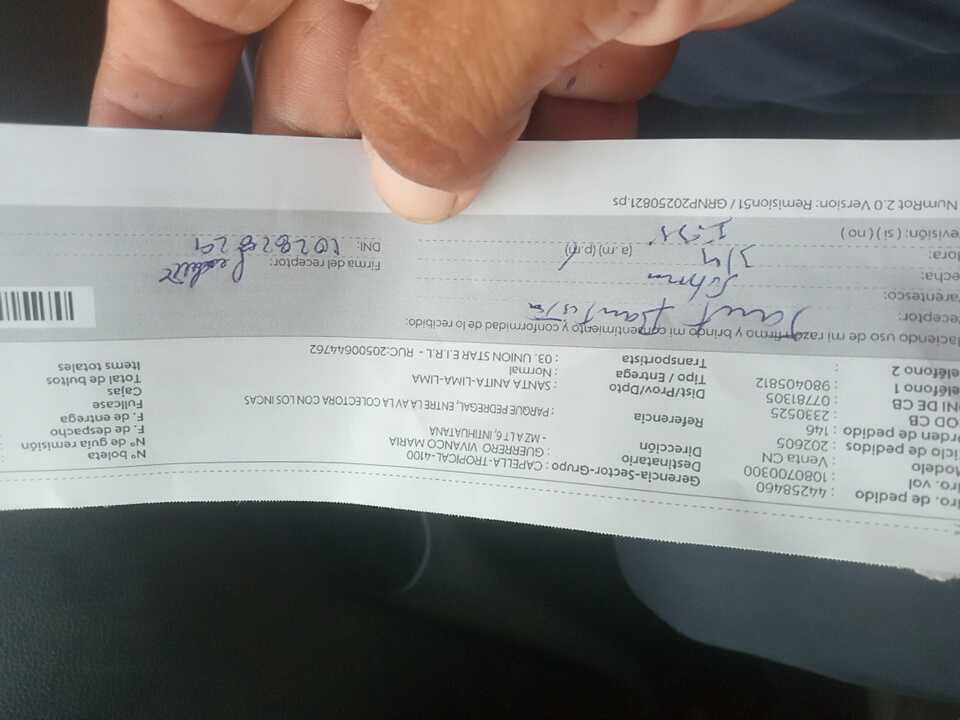 dro. de pedido : 44258460
dro. vol : 1080700300
Modelo : Venta CN
ciclo de pedidos : 202605
orden de pedido : 146
COD CB : 2330525
DNI DE CB : 07781305
Teléfono 1 : 980405812
Teléfono 2 :
Gerencia-Sector-Grupo : CAPELLA-TROPICAL-4100
Destinatario : GUERRERO VIVANCO MARIA
Dirección : - MZ A LT 6, INTIHUATANA
Referencia : PARQUE PEDREGAL, ENTRE LA AV LA COLECTORA CON LOS INCAS
Dist/Prov/Dpto : SANTA ANITA-LIMA-LIMA
Tipo / Entrega : Normal
Transportista : 03. UNION STAR E.I.R.L. - RUC:20500644762
N° boleta
N° guía remisión
F. de despacho
F. de entrega
Fullcase
Cajas
Total de bultos
Items totales
Haciendo uso de mi razón firmo y brindo mi consentimiento y conformidad de lo recibido:
receptor:
Parentesco:
Fecha: 3/9
Hora: (a.m) (p.m)
revisión: ( si ) ( no )
Firma del receptor:
DNI:
NumRot 2.0 Version: Remision51 / GRNP20250821.ps